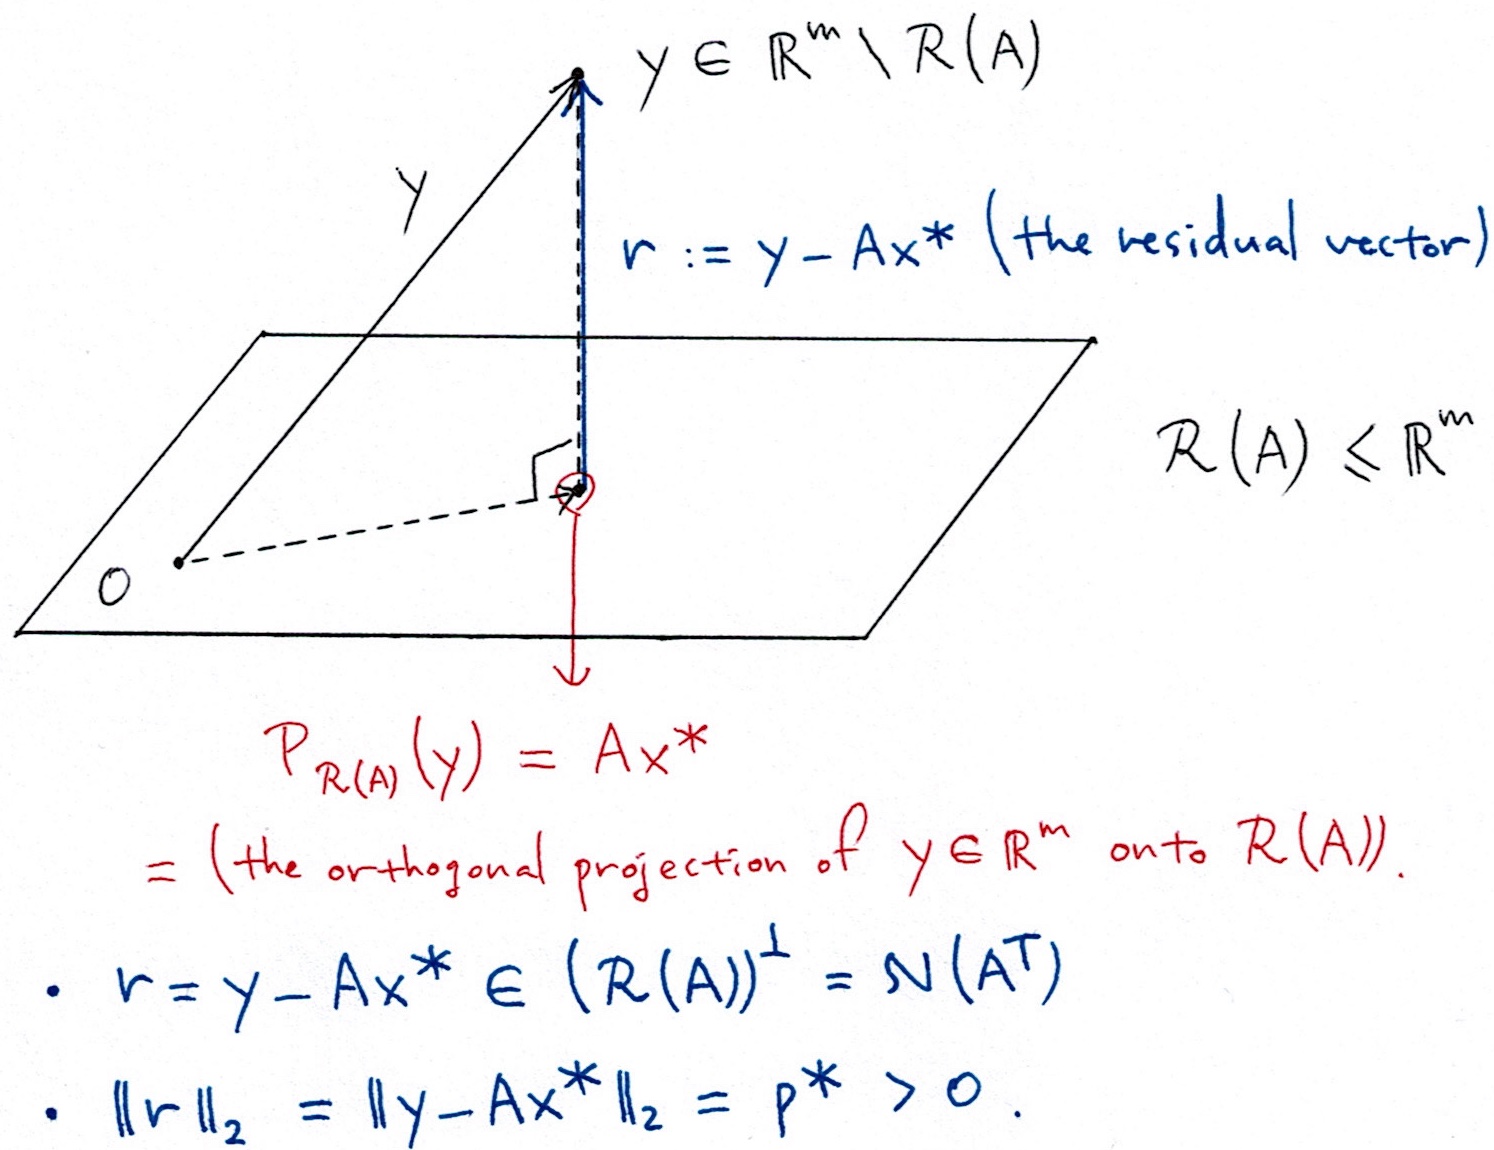 y ∈ ℝᵐ \ R(A)
y
r := y - Ax* (the residual vector)
R(A) ⩽ ℝᵐ
O
P_R(A) (y) = Ax*
= (the orthogonal projection of y ∈ ℝᵐ onto R(A)).
• r = y - Ax* ∈ (R(A))^⊥ = N(Aᵀ)
• ‖r‖₂ = ‖y - Ax*‖₂ = p* > 0.